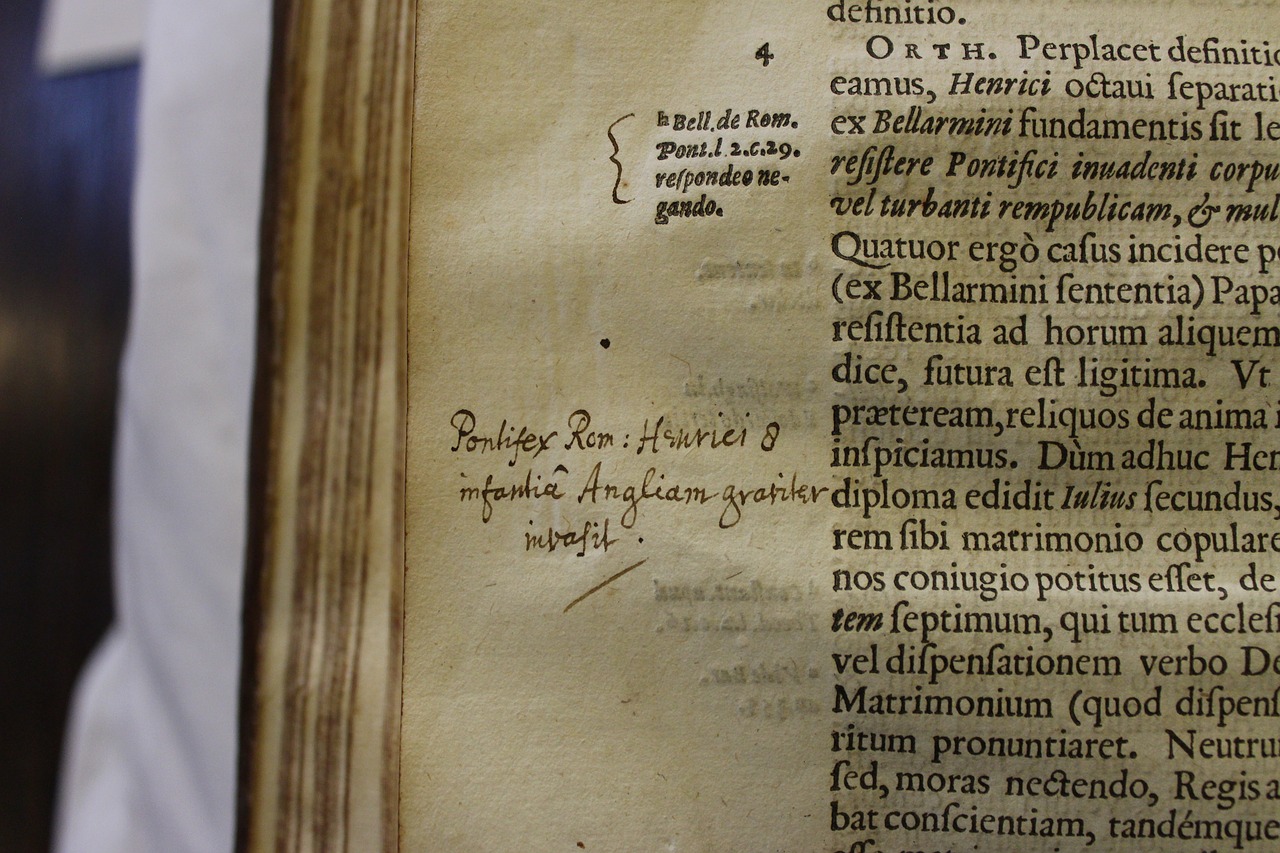 definitio.
4
ORTH. Perplacet definitio
eamus, Henrici octaui ſeparati
h Bell. de Rom.
Pont.l.2.c.29.
reſpondeo ne-
gando.
ex Bellarmini fundamentis ſit le
reſiſtere Pontifici inuadenti corpu
vel turbanti rempublicam, & mul
Quatuor ergò caſus incidere p
(ex Bellarmini ſententia) Papa
reſiſtentia ad horum aliquem
dice, futura eſt ligitima. Vt
præteream, reliquos de anima i
inſpiciamus. Dùm adhuc Hen
Pontifex Rom: Henrici 8
infantiâ Angliam graviter
invasit.
diploma edidit Iulius ſecundus,
rem ſibi matrimonio copulare
nos coniugio potitus eſſet, de
tem ſeptimum, qui tum eccleſi
vel diſpenſationem verbo De
Matrimonium (quod diſpenſ
ritum pronuntiaret. Neutru
ſed, moras nectendo, Regis a
bat conſcientiam, tandémque